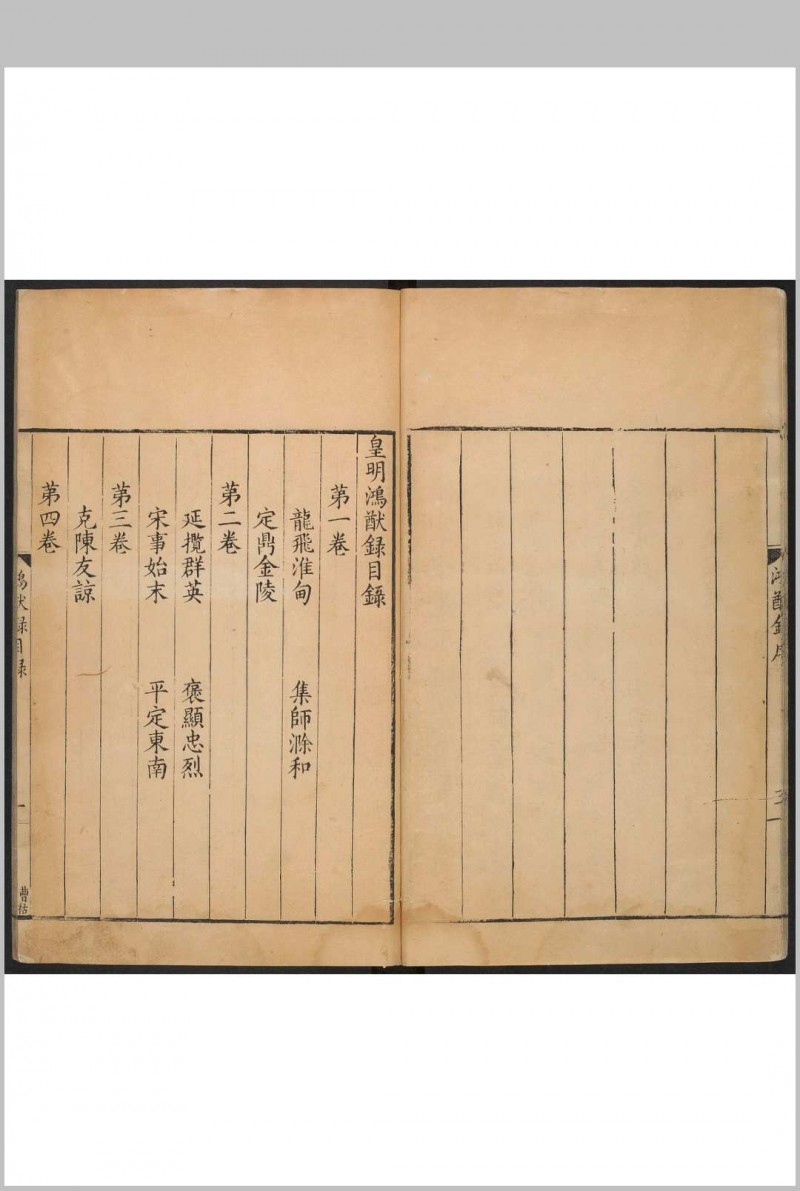 鴻猷錄序
皇明鴻猷録目錄
第一卷
龍飛淮甸　集師滁和
定鼎金陵
第二卷
延攬群英　褒顯忠烈
宋事始末　平定東南
第三卷
克陳友諒
第四卷
鴻猷録目錄
一